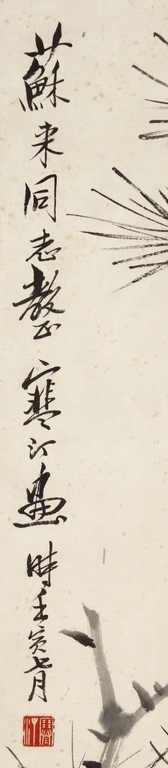 蘇来同志教正寒汀畫時壬寅七月